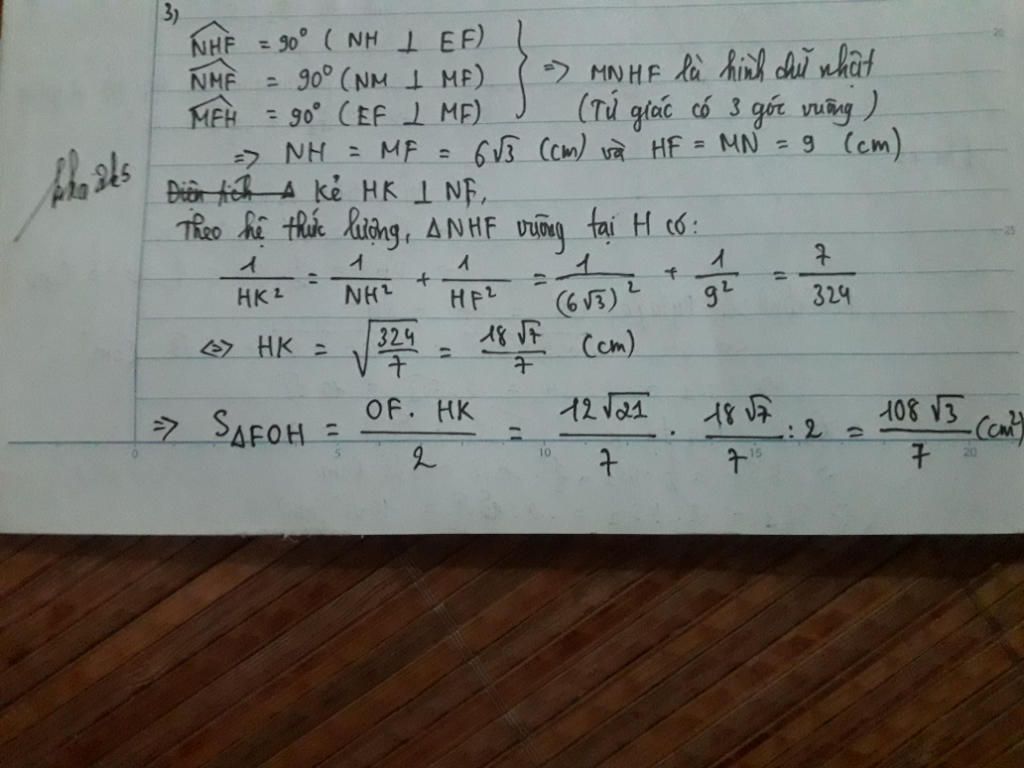 3)
∠NHF = 90° (NH ⊥ EF)
∠NMF = 90° (NM ⊥ MF)
∠MFH = 90° (EF ⊥ MF)
} => MNHF là hình chữ nhật
(Tứ giác có 3 góc vuông)
=> NH = MF = 6√3 (cm) và HF = MN = 9 (cm)
Diện tích Δ Kẻ HK ⊥ NF,
Theo hệ thức lượng, ΔNHF vuông tại H có:
1/HK² = 1/NH² + 1/HF² = 1/(6√3)² + 1/9² = 7/324
<=> HK = √(324/7) = 18√7/7 (cm)
=> SΔFOH = OF.HK/2 = 12√21/7 . 18√7/7 : 2 = 108√3/7 (cm²)
0 5 10 15 20
25